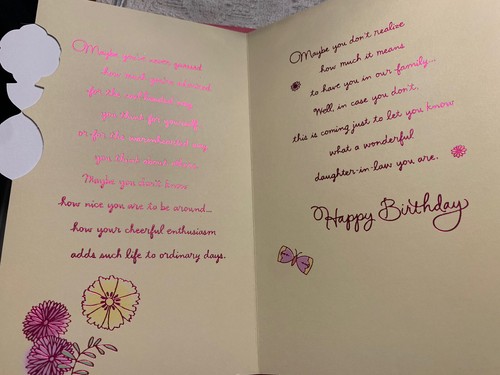 Maybe you've never guessed
how much you're admired
for the
way
you
for yourself
or for the
way
you
Maybe you don't know
how nice you are to be around...
how your cheerful enthusiasm
adds such life to ordinary days.
Maybe you don't realize
how much it means
to have you in our family...
Well, in case you don't,
this is coming just to let you know
what a wonderful
daughter-in-law you are.
Happy Birthday